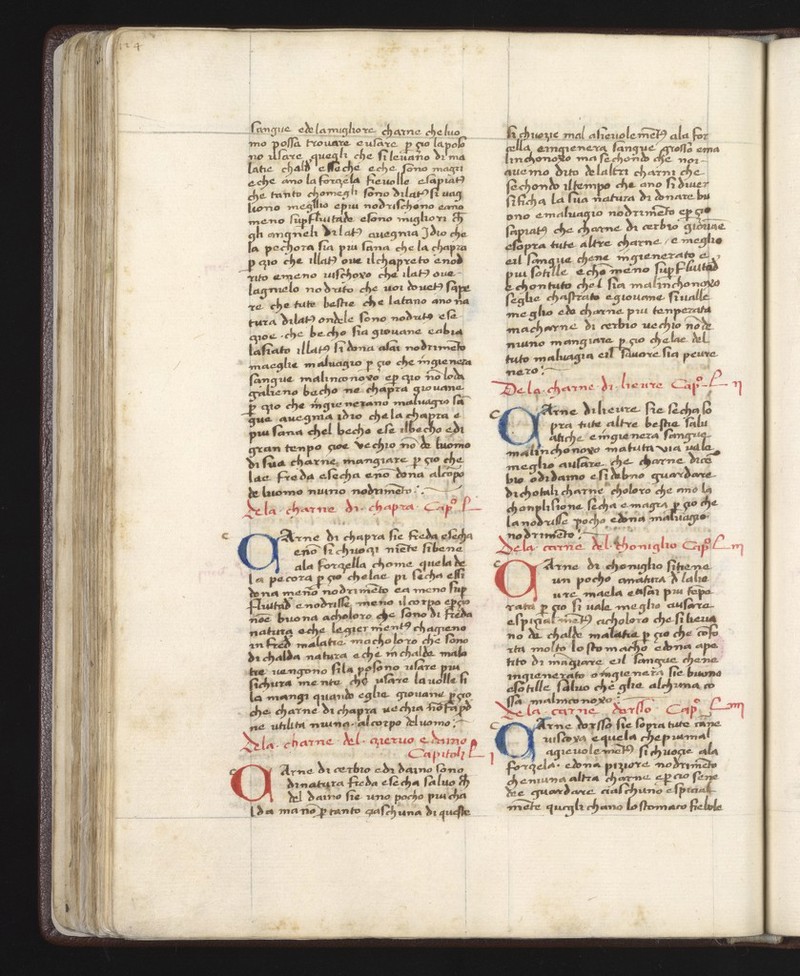 sangue e de la migliore charne che luo
mo possa trovare e usare p çio la poso
no usare quegli che si levano di ma
latie chald esseche eche sono magri
e che ano la forzela fievolle e sapiate
che tanto chomegli sono di late si vag
liono meglio e piu nodrischono eano
meno supfluitade e sono migliori ch
gli angneli di late avegnia idio che
la pechora sia piu sana che la chapra
p çio che illate ove il chapreto e nod
rito e meno vischoxo che ilate ove
lagnielo nodrito che voi dovete sape
re che tute bestie che latano ano na
tura di late ondele sono nodrite e se
que che becho sia giovane e abia
lasiato illate si dona alchun nodrimeto
ma eglie malvagio p çio che ingienera
sangue malinconoxo ep çio no loda
galieno becho ne chapra giovane
p çio che ingienerano malvagio sa
gue avegnia idio che la chapra e
piu sana chel becho e se ilbecho e di
gran tenpo çioe vechio no de luomo
di sua charne mangiare p çio che
lae freda e secha eno dona alcopo
de luomo niuno nodrimeto
De la charne di chapra Cap
c
Charne di chapra sie freda e secha
eno si chuoçi niete si bene
ala forzella chome quela de
la pecora p çio chelae pi secha essi
dona meno nodrimeto ea meno sup
fluitad e nodrisse meno il corpo epçio
noe buona acholoro che sono di freda
natura e che legiermente chagieno
in fred malatie ma choloro che sono
di chalda natura e che in chalde mala
tie vengono sila posono usare piu
sichura mente che usare la volle si
la mangi quando eglie giovane pçio
che charne di chapra vechia no fa pd
ne utilita niuna al corpo deluomo
De la charne del çiervo e daino
Capitol I
c
Carne di cerbio e di daino sono
di natura freda e secha salvo ch
del daino sie uno pocho piu cha
lda ma no p tanto çaschuna di queste
si chuoxie mal agievolemete ala for
çella e ingienera sangue grosso e ma
linchonoxo ma sechondo che noi
avemo dito de laltri charni che
sechondo il tempo che ano si diver
sificha la sua natura di donare bu
ono e malvagio nodrimeto ep çio
sapiate che charne di cerbio giovane
e sopra tute altre charne e meglio
eil sangue chene ingienerato e
piu sotille e cho meno supfluitad
e chon tuto chel sia malinchonoxo
seglie chastrato e giovane si valle
meglio e do charne piu tenperata
ma charne di cerbio vechio no de
niuno mangiare p çio chelae del
tuto malvagia eil savore sia pevre
nero
De la charne di lievre Cap II
c
Carne di lievre sie secha so
pra tute altre bestie salv
atiche e ingienera sangue
malinchonoxo ma tuta via vale
meglio a usare che charne di ce
bio o di daino e si debno guardare
di chotali charne choloro che ano la
chonplisione secha e magra p çio che
la nodrisse pocho e dona malvagio
nodrimeto
De la carne del choniglio Cap III
c
Carne di choniglio si tiene
un pocho a natura d la lie
vre ma ela e asai piu tepe
rata p çio si vale meglio a usare
espicialmete acholoro che si lieva
no de chalde malatie p çio che cofo
rta molto lo stomacho e dona ape
tito di magiare eil sangue chene
ingienerato o ingienera sie buono
e sotille salvo che glie alchuna co
ssa malinconoxo
De la carne dorsso Cap IIII
c
Carne dorsso sie sopra tute carne
viscoxa e quela che piu mal
agievolemete si chuoçie ala
forzela e dona piziore nodrimeto
che niuna altra charne ep çio sene
dee guardare ciaschuno e special
mete quegli chano lo stomaco fiebole